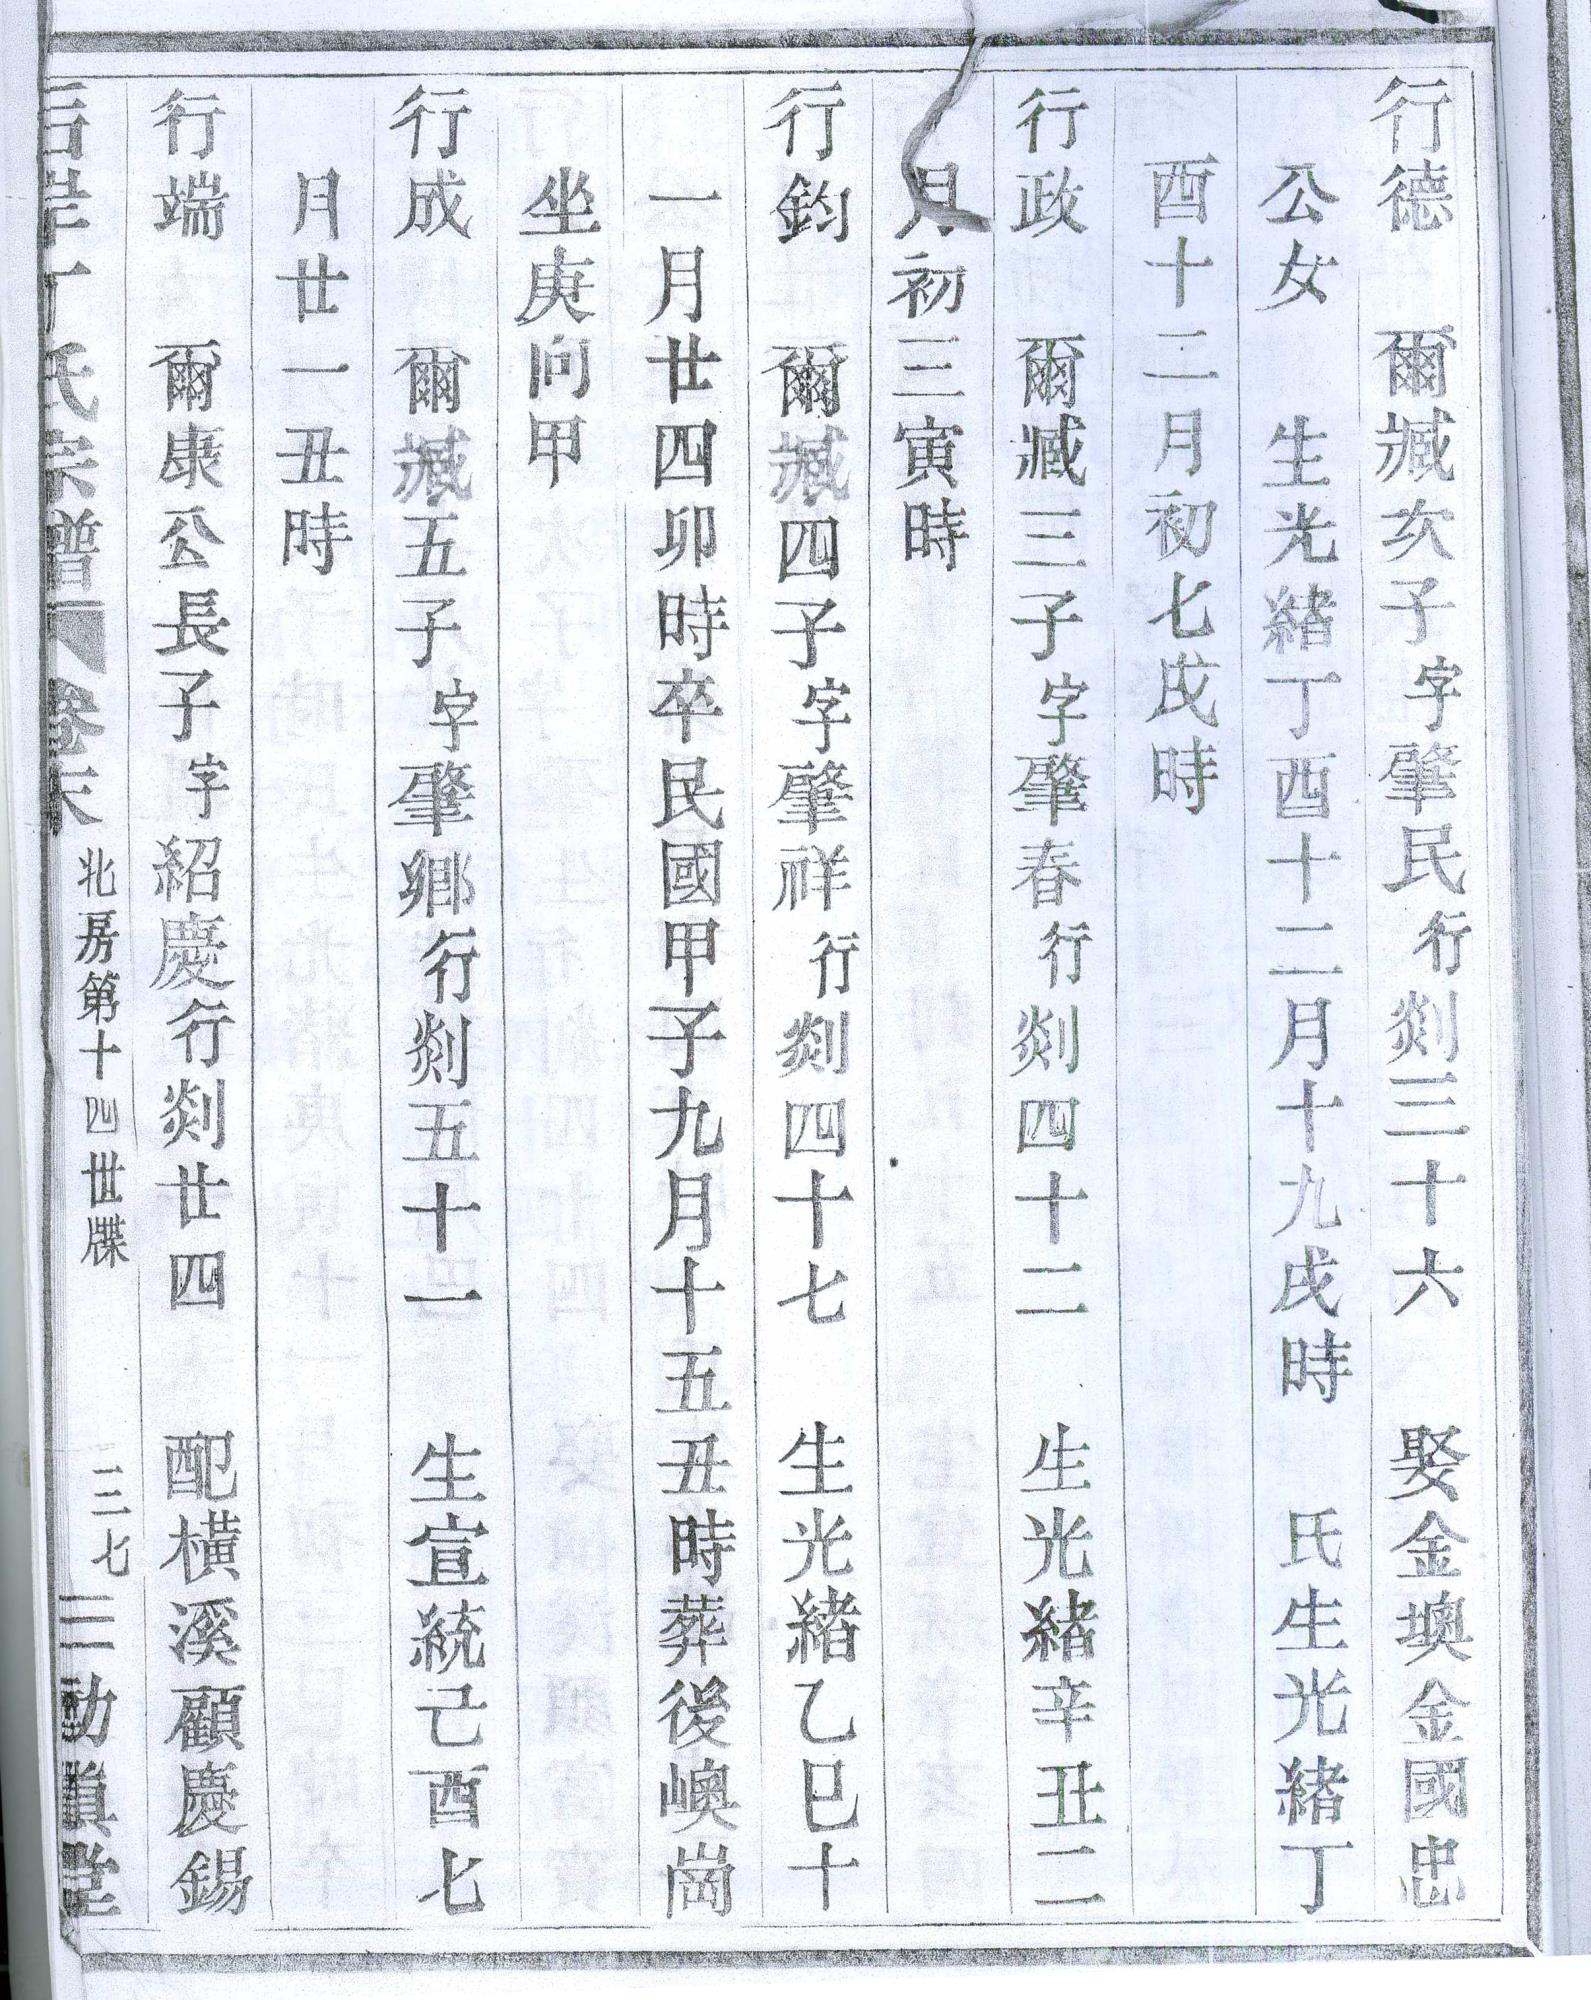 行德　爾臧次子字肇民行剡三十六　娶金墺金國忠
公女　生光緒丁酉十二月十九戌時　氏生光緒丁
酉十二月初七戌時
行政　爾臧三子字肇春行剡四十二　生光緒辛丑二
月初三寅時
行鈞　爾臧四子字肇祥行剡四十七　生光緒乙巳十
一月廿四卯時卒民國甲子九月十五丑時葬後㠗崗
坐庚向甲
行成　爾臧五子字肇鄉行剡五十一　生宣統己酉七
月廿一丑時
行端　爾康公長子字紹慶行剡廿四　配橫溪顧慶錫
氏宗譜　卷末　北房第十四世牒　三七